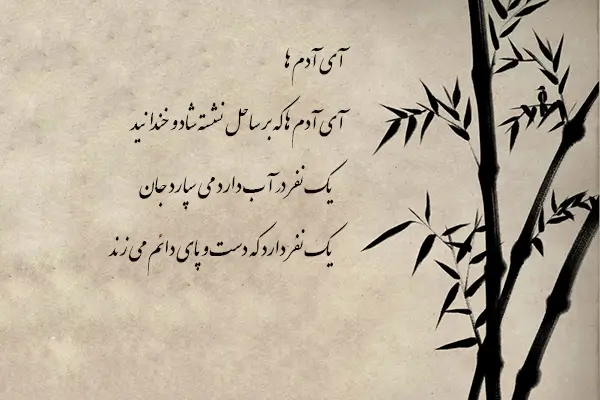 آی آدم ها
آی آدم ها که بر ساحل نشسته شاد و خندانید
یک نفر در آب دارد می سپارد جان
یک نفر دارد که دست و پای دائم می زند